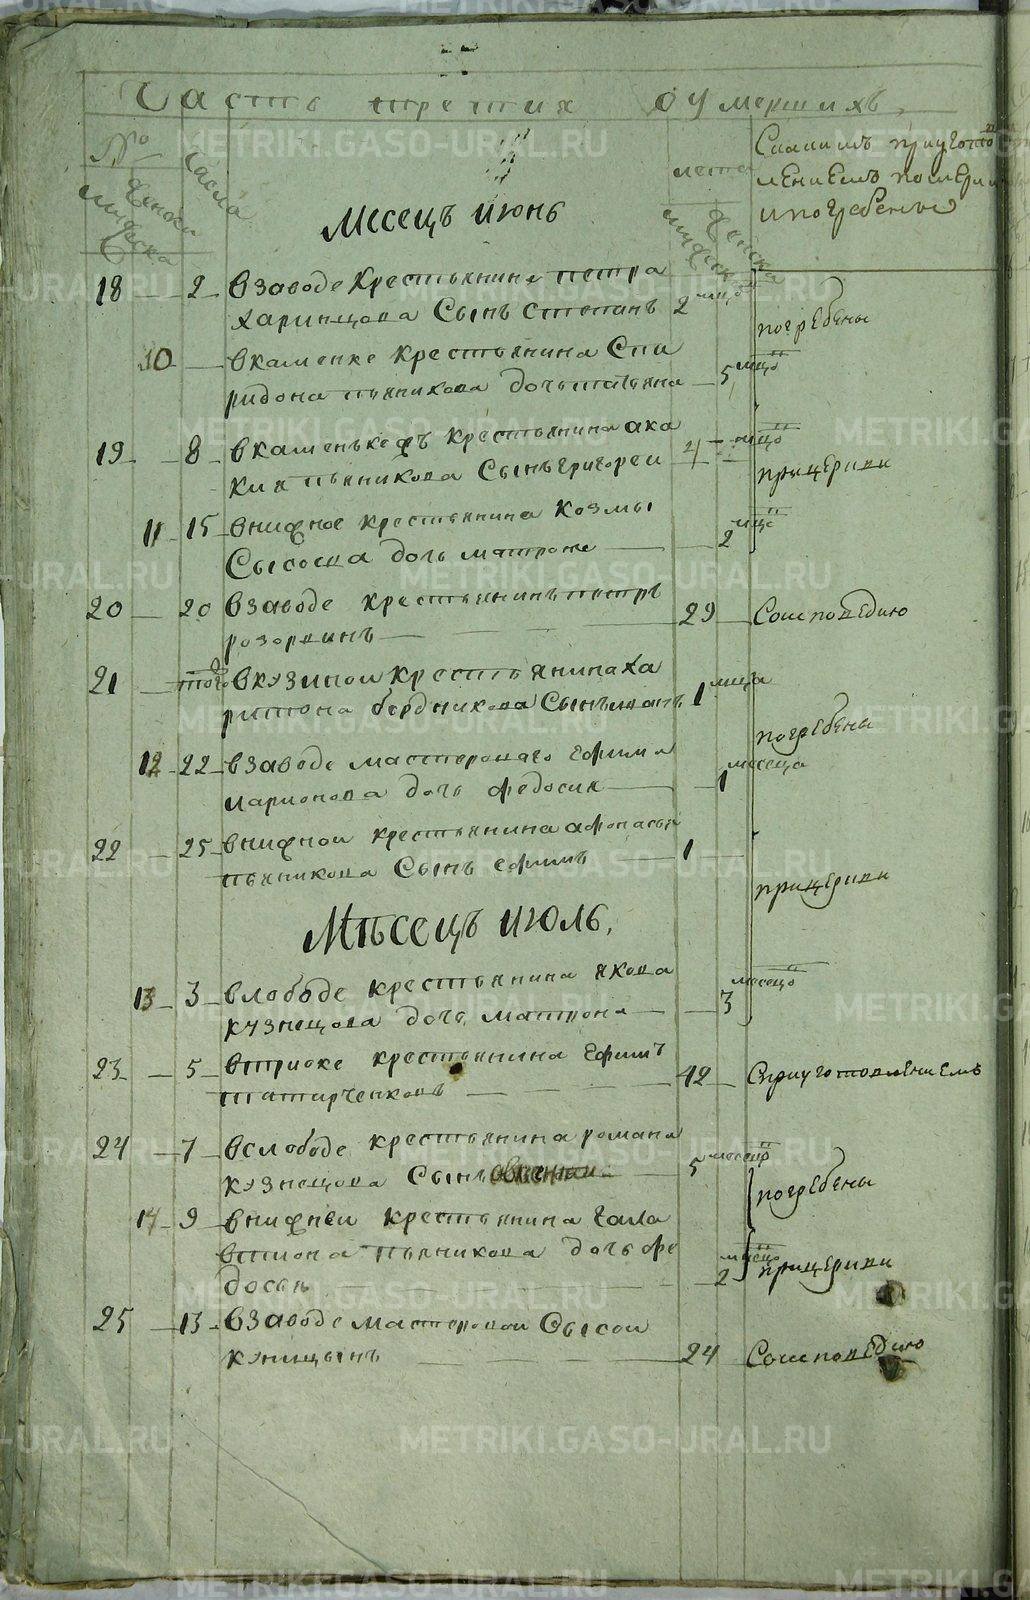 Часть третия О умершихъ,
№ числа лета Скаким приуготовлениемъ
мужеска женска мужеска женска и погребены
месецъ июнь
18 2 взаводе крестьянина петра
харинцова Сынъ степанъ 2 мцо погребены
10 вкаменке крестьянина Спи
ридона пьяникова дочь татьяна 5 мцо
19 8 вкаменкеже крестьянина ака
кия пьяникова Сынъ григореи 4 мцо прицеркви
11 15 внижное крестьянина козмы
Сысоева дочь матрона 2 мцо
20 20 взаводе крестьянинъ петръ
розорвинъ 29 Соисповедию
21 того вкузинои крестьянина ха
ритона бердникова Сынъ иванъ 1 мцса
погребены
12 22 взаводе мастероваго ефима
ларионова дочь федосия 1 месеца
22 25 внижнои крестьянина афонасья
пьянникова Сынъ ефимъ 1 прицеркви
Мѣсецъ июль,
13 3 вслободе крестьянина якова
кузнецова дочь матрона 3 месецо
23 5 втриоке крестьянина ефимъ
татарченковъ 42 Сприуготовлениемъ
24 7 вслободе крестьянина романа
кузнецова Сынъ 5 месецо погребены
14 9 внижнеи крестьянина гала
ктиона пьяникова дочь фе
досья 2 месецо прицеркви
25 13 взаводе мастеровои Сысои
куницынъ 24 Соисповедию
METRIKI.GASO-URAL.RU